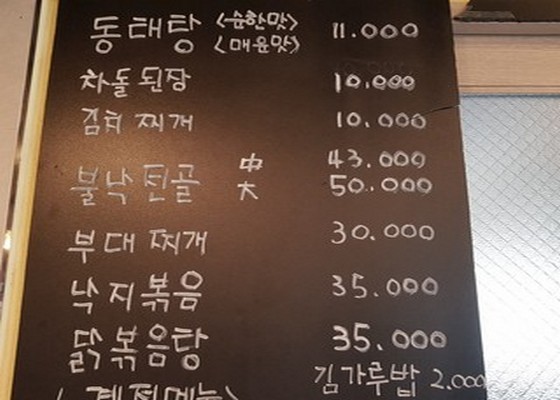 동태탕 <순한맛> 11.000
<매운맛>
차돌된장 10.000
김치찌개 10.000
불낙전골 中 43.000
大 50.000
부대찌개 30.000
낙지볶음 35.000
닭볶음탕 35.000
김가루밥 2.000
<계절메뉴>